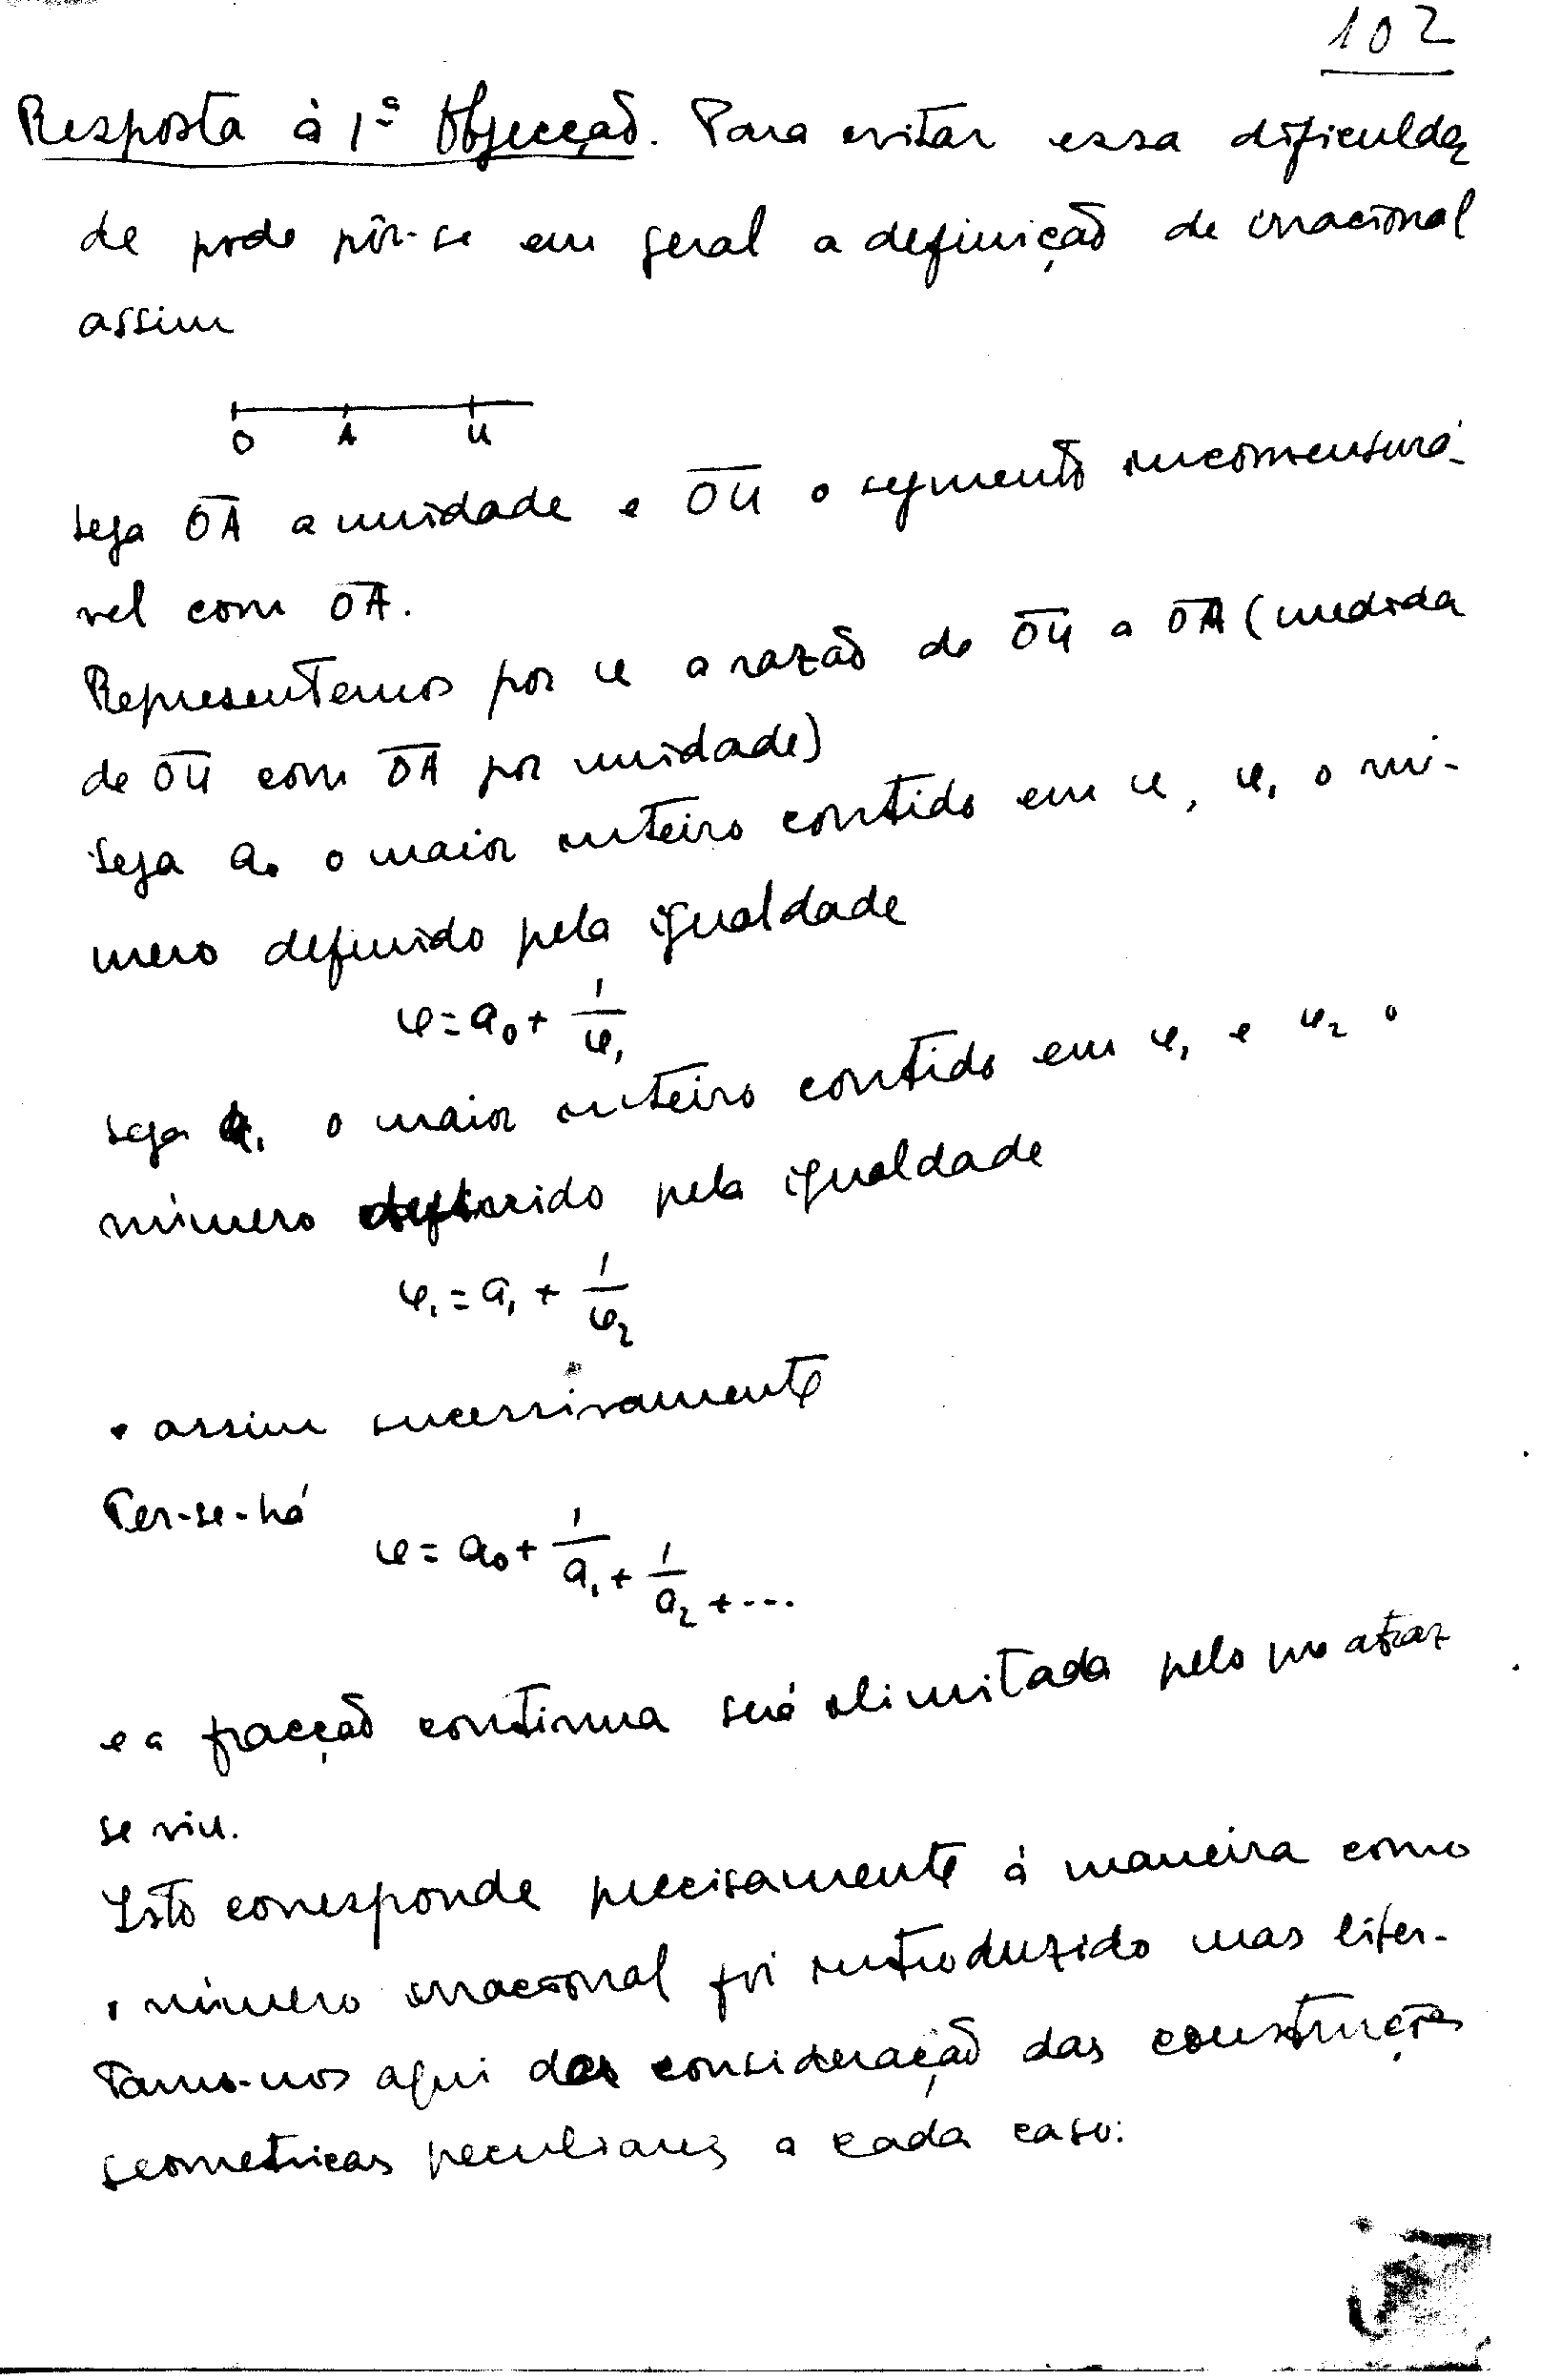 102
Resposta à 1ª Objecção. Para evitar essa dificulda
de pode pôr-se em geral a definição de irracional
assim
O A U
Seja OA a unidade e OU o segmento incomensurá-
vel com OA.
Representemos por φ a razão de OU a OA (medida
de OU com OA por unidade)
Seja a₀ o maior inteiro contido em φ, φ₁ o nú-
mero definido pela igualdade
φ = a₀ + 1/φ₁
seja a₁ o maior inteiro contido em φ₁ e φ₂ o
número definido pela igualdade
φ₁ = a₁ + 1/φ₂
e assim sucessivamente
Ter-se-há
φ = a₀ + 1/a₁ + 1/a₂ + ...
e a fracção contínua será ilimitada pelo que atraz
se viu.
Isto corresponde precisamente á maneira como
o número irracional foi introduzido mas liber-
tamo-nos aqui da consideração das construções
geometricas peculiares a cada caso: